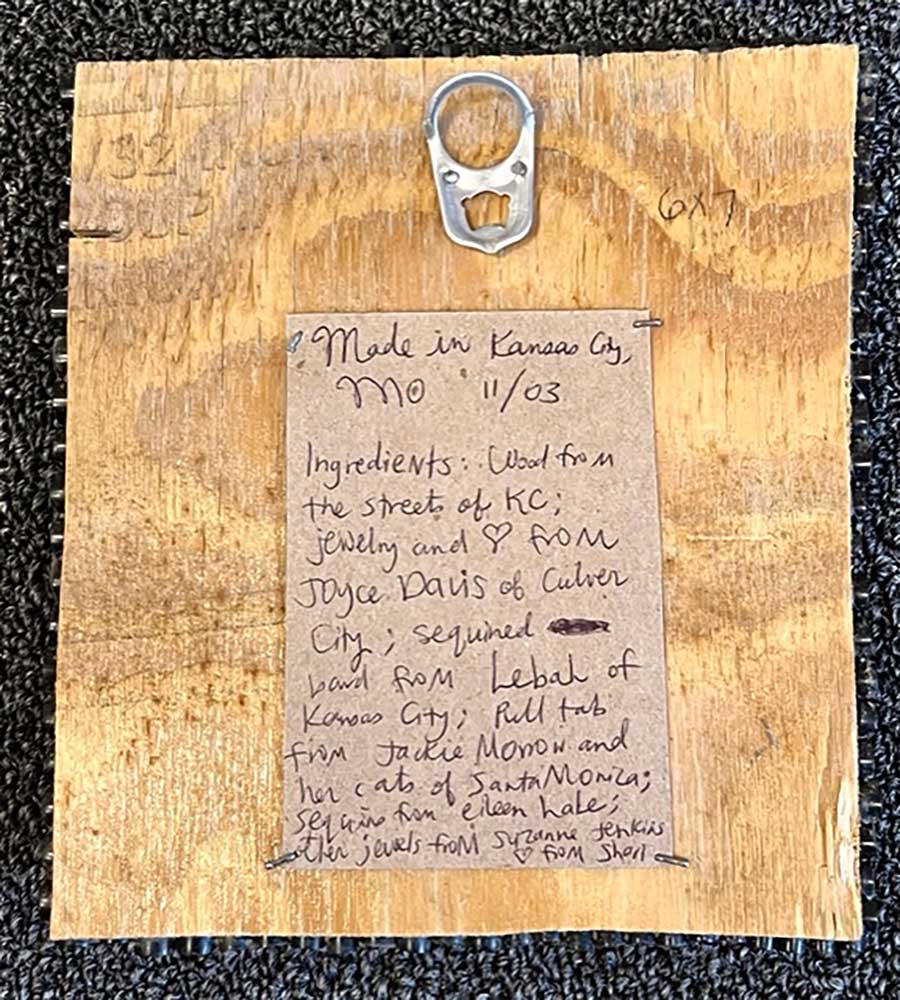 6x7
Made in Kansas City,
MO 11/03
Ingredients: Wood from
the streets of KC;
jewelry and ♡ from
Joyce Davis of Culver
City; sequined
band from Lebah of
Kansas City; Pull tab
from Jackie Morrow and
her cats of Santa Monica;
sequins from eileen Lake;
other jewels from Suzanne Jenkins
♡ from Shari